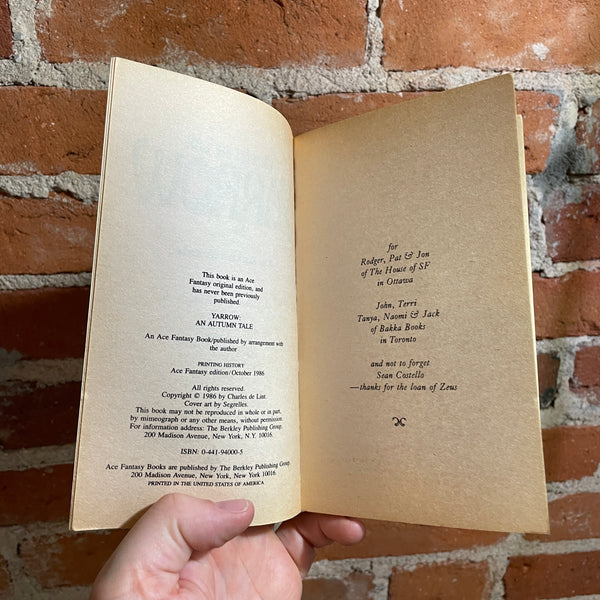 This book is an Ace
Fantasy original edition, and
has never been previously
published.
YARROW:
AN AUTUMN TALE
An Ace Fantasy Book/published by arrangement with
the author
PRINTING HISTORY
Ace Fantasy edition/October 1986
All rights reserved.
Copyright © 1986 by Charles de Lint.
Cover art by Segrelles.
This book may not be reproduced in whole or in part,
by mimeograph or any other means, without permission.
For information address: The Berkley Publishing Group,
200 Madison Avenue, New York, N.Y. 10016.
ISBN: 0-441-94000-5
Ace Fantasy Books are published by The Berkley Publishing Group,
200 Madison Avenue, New York, New York 10016.
PRINTED IN THE UNITED STATES OF AMERICA
for
Rodger, Pat & Jon
of The House of SF
in Ottawa
John, Terri
Tanya, Naomi & Jack
of Bakka Books
in Toronto
and not to forget
Sean Costello
—thanks for the loan of Zeus